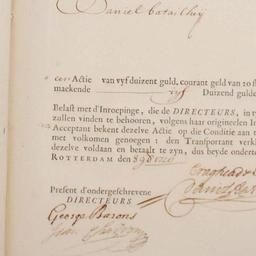 Daniel
een Actie van vyf duizent guld. courant geld van 20 st
mackende vyf Duizend gulde
Belast met d'Inroepinge, die de DIRECTEURS, in v
zullen vinden te behooren, volgens haar origineelen In
Acceptant bekent dezelve Actie op die Conditie aan t
met volkomen genoegen : den Transportant verkl
dezelve voldaan en betaalt te zyn, dus beyde onderte
ROTTERDAM den
Present d'ondergeschrevene
DIRECTEURS
George Barons